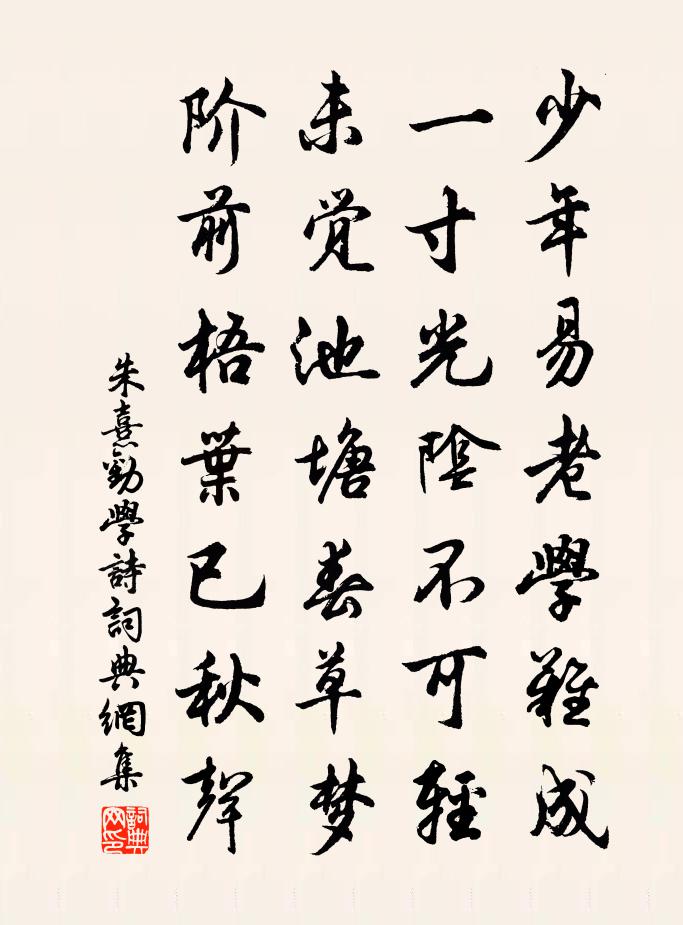 少年易老學難成
一寸光陰不可輕
未觉池塘春草梦
阶前梧葉已秋聲
朱熹勸學詩詞典網集
詞典网印